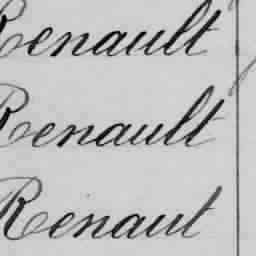 Renault
Renault
Renaut